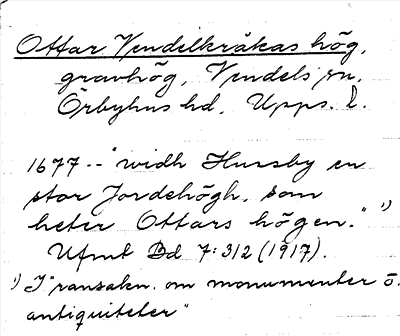 Ottar Vendelkråkas hög,
gravhög, Vendels sn,
Örbyhus hd, Upps. l.
1677 -- "widh Hunsby en
stor Jordehögh, som
heter Ottars högen." ¹)
Ufmt Bd 7:312 (1917).
¹) I "ransakn. om monumenter o.
antiquiteter"